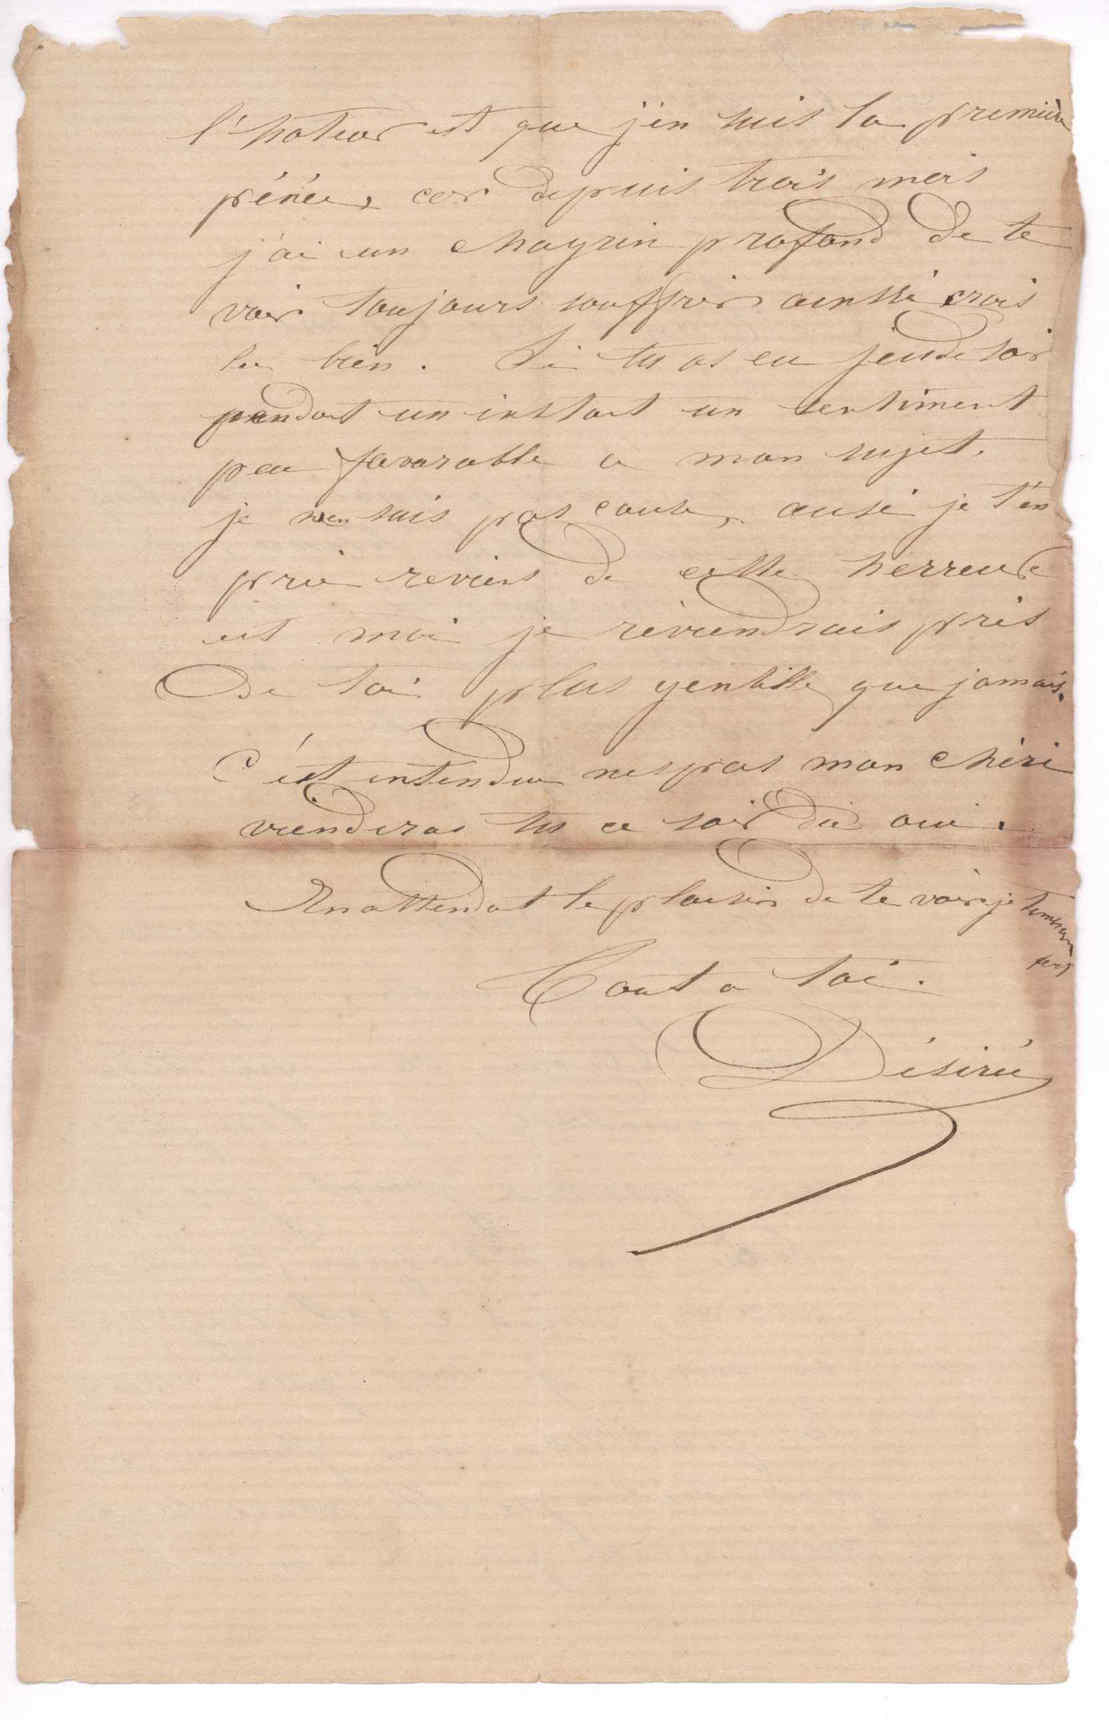 est que j'en suis la première
pénée, car depuis trois mois
j'ai un chagrin profond de te
voir toujours souffrir ainssi crois
le bien. Si tu as eu jeudi soir
pendant un instant un sentiment
peu favorable a mon sujet.
je nen suis pas cause, ausi je t'en
prie reviens de cette herreur
et moi je reviendrais près
De toi plus gentille que jamais.
C'est entendu nespas mon chéri
vienderas tu ce soir di oui.
En attendant le plaisir de te voir je
Tout a toi.
Désirée